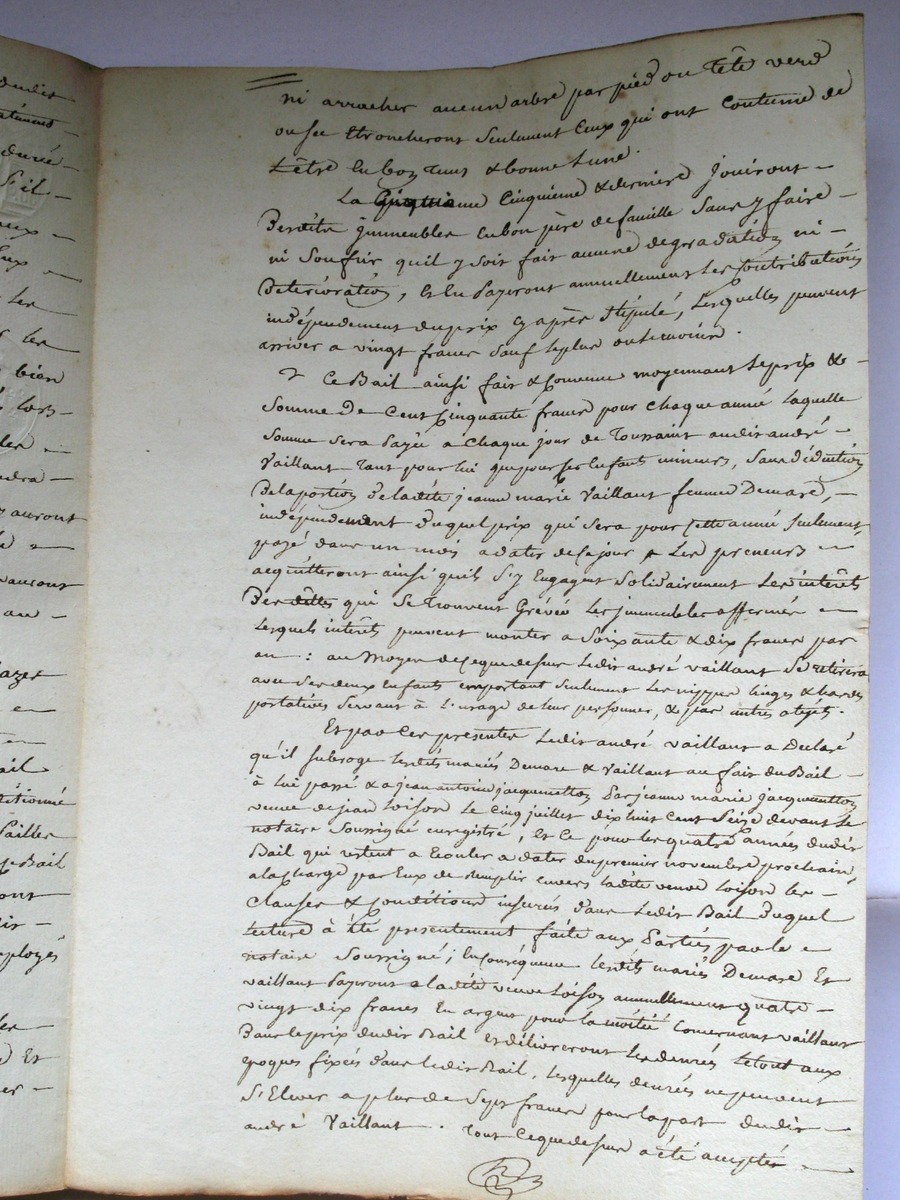 ni arracher aucun arbre par pied ou tête verd
ou sec Etroncheront seulement Ceux qui ont coutume de
L'être En bon tems & bonne Lune.
La Cinquième & dernière jouiront
Desdits jmmeubles En bon père de famille Sans y faire
ni Soufrir quil y soit fait aucune degradation ni
Déterioration, Et En Payeront annuellement Les Contributions
indépendement du prix cy après Stipulé, Lesquelles peuvent
arriver a vingt francs sauf le plus ou le moins.
Ce Bail ainsi fait & Convenu moyennant Le prix &
Somme De Cent Cinquante francs pour chaque année laquelle
somme sera Payée a chaque jour de Toussaint audit andré
Vaillant tant pour lui que pour ses Enfants mineurs, Sans déduction
De la portion De ladite jeanne marie Vaillant femme Demare,
indépendement Duquel prix qui sera pour Cette année seulement,
payé dans un mois a dater de ce jour Les preneurs
acquitteront ainsi quils S'y Engagent Solidairement Les intérêts
Des dettes qui Se trouvent Grévés Les jmmeubles affermés
Lesquels intérêts peuvent monter a Soixante & dix francs par
an : au Moyen de ce que dessus Ledit andré vaillant Se retirera
avec Ses deux Enfants emportant seulement Les nippes linges & hardes
portatives Servant à L'usage de leur personnes, & pas autres objets.
Et par Ces presentes Ledit andré vaillant a Declaré
qu'il subroge Lesdits mariés Demare & Vaillant au fait du Bail
à Lui passé & a jean antoine jacquemetton Par jeanne marie jacquemetton
veuve de jean Loison Le Cinq juillet dix huit Cent Seize devant Le
notaire Soussigné enregistré, Et Ce pour les quatre années dudit
Bail qui restent a Ecouler a dater du premier novembre prochain,
a la Charge par Eux de remplir envers ladite veuve Loison les
Clauses & Conditions inserées Dans Ledit Bail Duquel
Lecture à été presentement faite aux Parties par le
notaire Soussigné ; En Conséquence Lesdits mariés Demare Et
vaillant Payeront a ladite veuve Loison annuellement quatre
vingt dix francs En argent pour la moitié Concernant vaillant
Dans le prix dudit Bail Et délivreront Les denrées Le tout aux
époques fixées Dans Ledit Bail, Lesquelles denrées ne peuvent
S'Elever a plus de Sept francs pour la part dudit
andré Vaillant. Tout Ce que dessus a été accepté